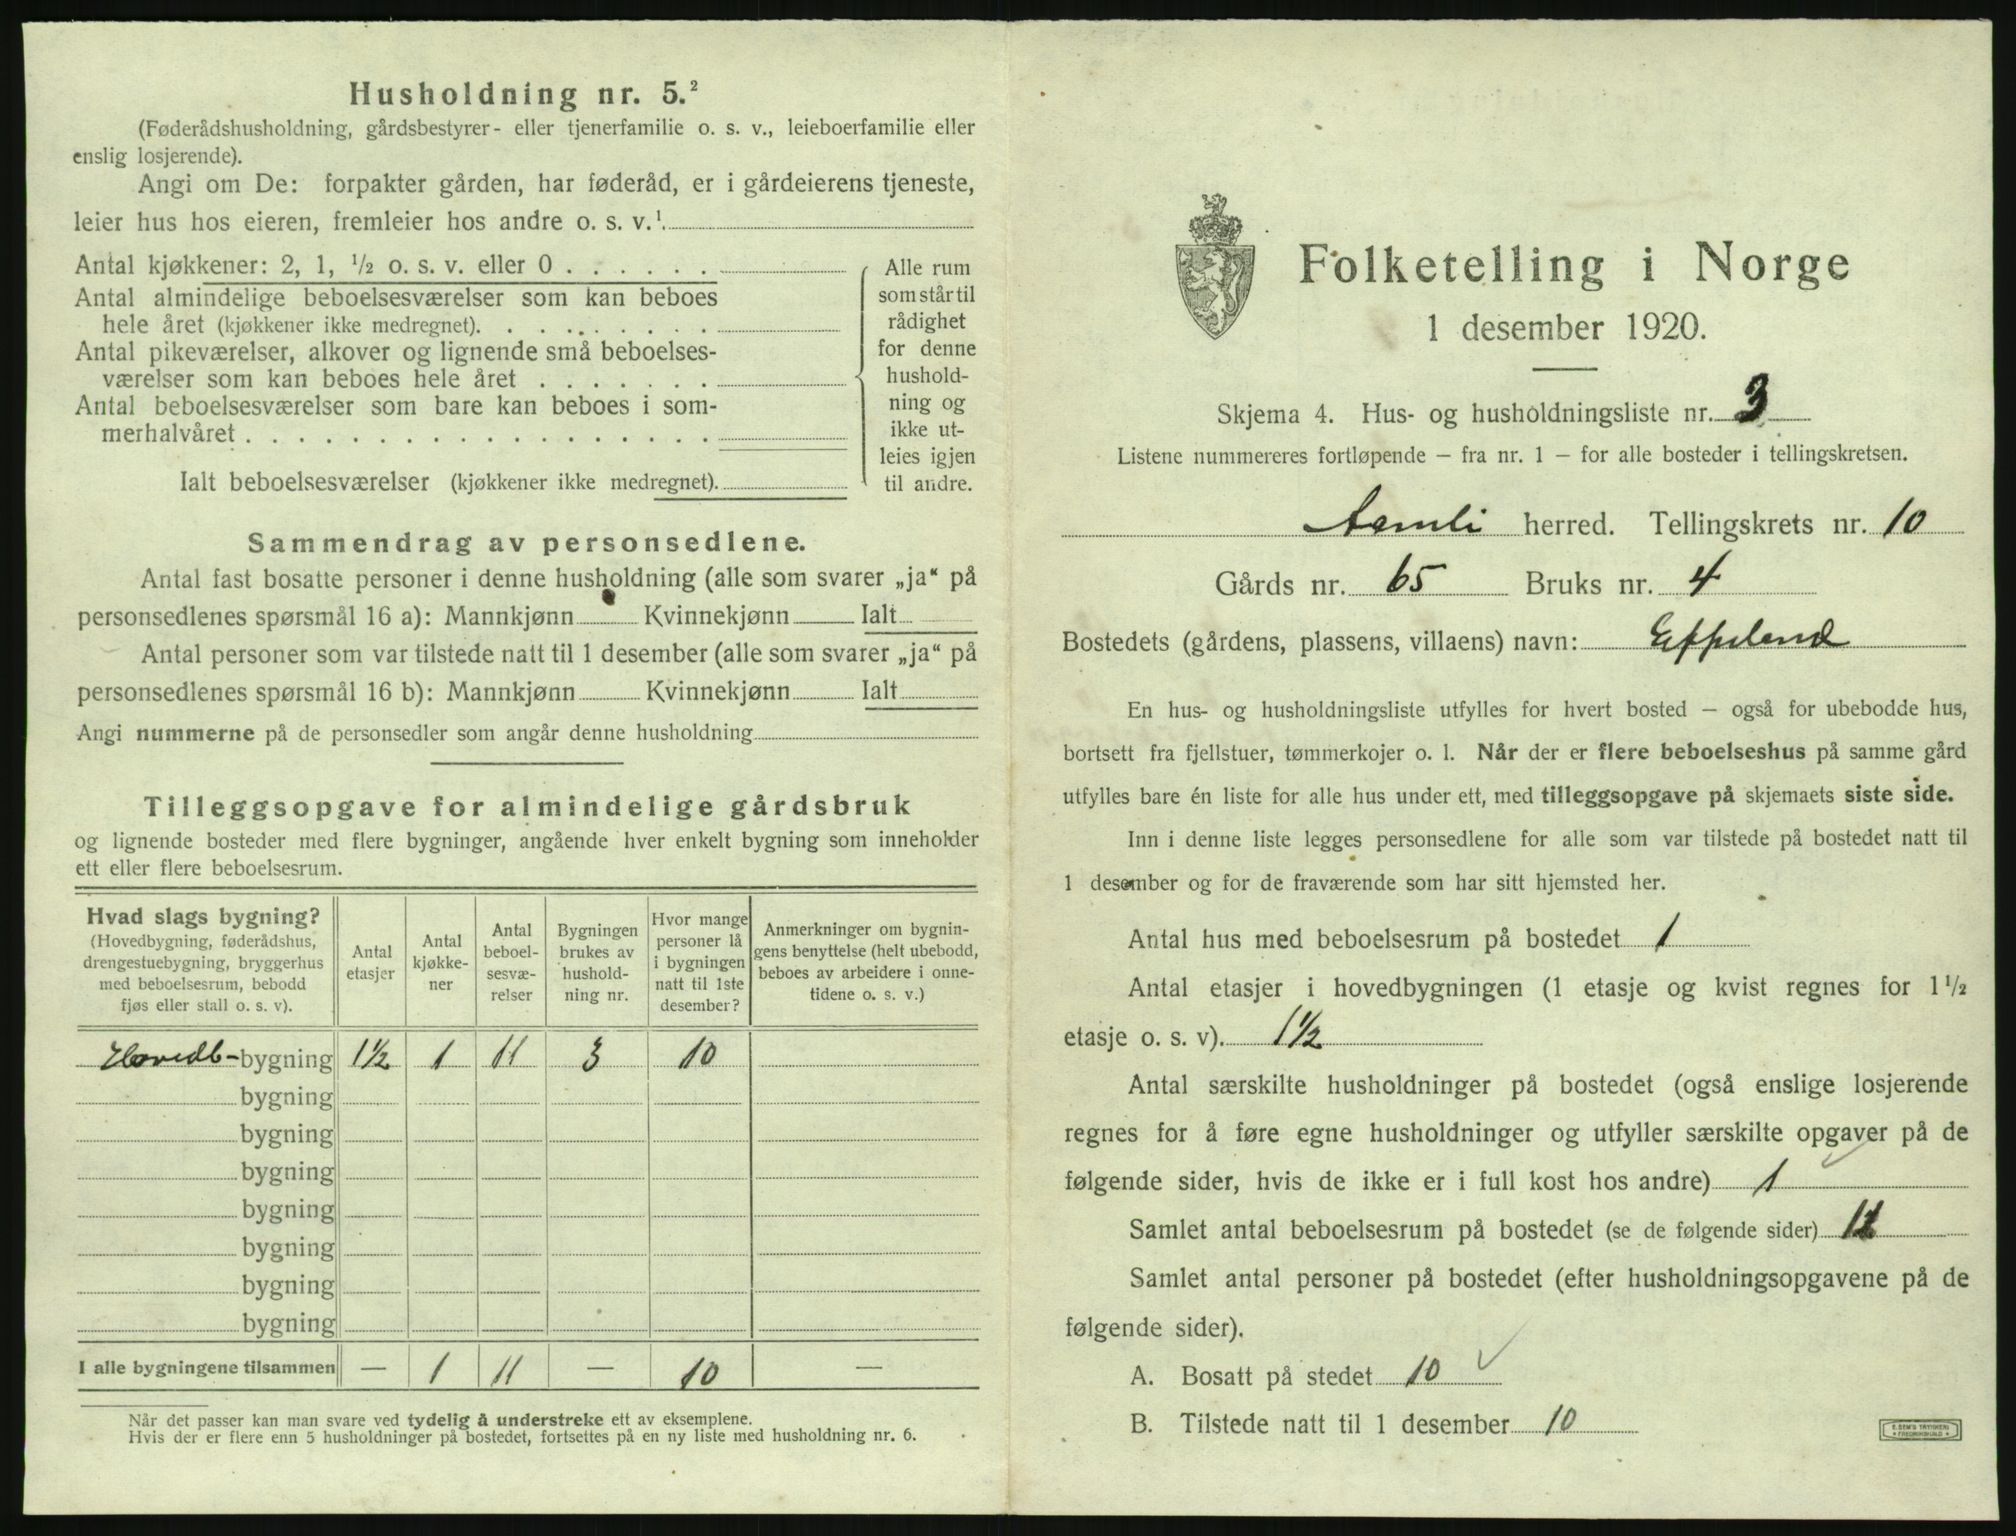 Husholdning nr. 5.²
(Føderådshusholdning, gårdsbestyrer- eller tjenerfamilie o. s. v., leieboerfamilie eller
enslig losjerende).
Angi om De: forpakter gården, har føderåd, er i gårdeierens tjeneste,
leier hus hos eieren, fremleier hos andre o. s. v.¹
Antal kjøkkener: 2, 1, ½ o. s. v. eller 0 . . . . . .
Antal almindelige beboelsesværelser som kan beboes
hele året (kjøkkener ikke medregnet). . . . . . . . .
Antal pikeværelser, alkover og lignende små beboelses-
værelser som kan beboes hele året . . . . . . .
Antal beboelsesværelser som bare kan beboes i som-
merhalvåret . . . . . . . . . . . . . . . . . .
Ialt beboelsesværelser (kjøkkener ikke medregnet).
Alle rum
som står til
rådighet
for denne
hushold-
ning og
ikke ut-
leies igjen
til andre.
Sammendrag av personsedlene.
Antal fast bosatte personer i denne husholdning (alle som svarer „ja“ på
personsedlenes spørsmål 16 a): Mannkjønn Kvinnekjønn Ialt
Antal personer som var tilstede natt til 1 desember (alle som svarer „ja“ på
personsedlenes spørsmål 16 b): Mannkjønn Kvinnekjønn Ialt
Angi nummerne på de personsedler som angår denne husholdning
Tilleggsopgave for almindelige gårdsbruk
og lignende bosteder med flere bygninger, angående hver enkelt bygning som inneholder
ett eller flere beboelsesrum.
Hvad slags bygning?
(Hovedbygning, føderådshus,
drengestuebygning, bryggerhus
med beboelsesrum, bebodd
fjøs eller stall o. s. v).
Antal
etasjer
Antal
kjøkke-
ner
Antal
beboel-
sesvæ-
relser
Bygningen
brukes av
hushold-
ning nr.
Hvor mange
personer lå
i bygningen
natt til 1ste
desember?
Anmerkninger om bygnin-
gens benyttelse (helt ubebodd,
beboes av arbeidere i onne-
tidene o. s. v.)
Hovedb-bygning 1½ 1 11 3 10
bygning
bygning
bygning
bygning
bygning
bygning
bygning
I alle bygningene tilsammen — 1 11 — 10 —
Når det passer kan man svare ved tydelig å understreke ett av eksemplene.
Hvis der er flere enn 5 husholdninger på bostedet, fortsettes på en ny liste med husholdning nr. 6.
Folketelling i Norge
1 desember 1920.
Skjema 4. Hus- og husholdningsliste nr. 3
Listene nummereres fortløpende — fra nr. 1 — for alle bosteder i tellingskretsen.
Aamli herred. Tellingskrets nr. 10
Gårds nr. 65 Bruks nr. 4
Bostedets (gårdens, plassens, villaens) navn: Eppeland
En hus- og husholdningsliste utfylles for hvert bosted — også for ubebodde hus,
bortsett fra fjellstuer, tømmerkojer o. l. Når der er flere beboelseshus på samme gård
utfylles bare én liste for alle hus under ett, med tilleggsopgave på skjemaets siste side.
Inn i denne liste legges personsedlene for alle som var tilstede på bostedet natt til
1 desember og for de fraværende som har sitt hjemsted her.
Antal hus med beboelsesrum på bostedet 1
Antal etasjer i hovedbygningen (1 etasje og kvist regnes for 1½
etasje o. s. v). 1½
Antal særskilte husholdninger på bostedet (også enslige losjerende
regnes for å føre egne husholdninger og utfyller særskilte opgaver på de
følgende sider, hvis de ikke er i full kost hos andre) 1
Samlet antal beboelsesrum på bostedet (se de følgende sider)
Samlet antal personer på bostedet (efter husholdningsopgavene på de
følgende sider).
A. Bosatt på stedet 10 ✓
B. Tilstede natt til 1 desember 10